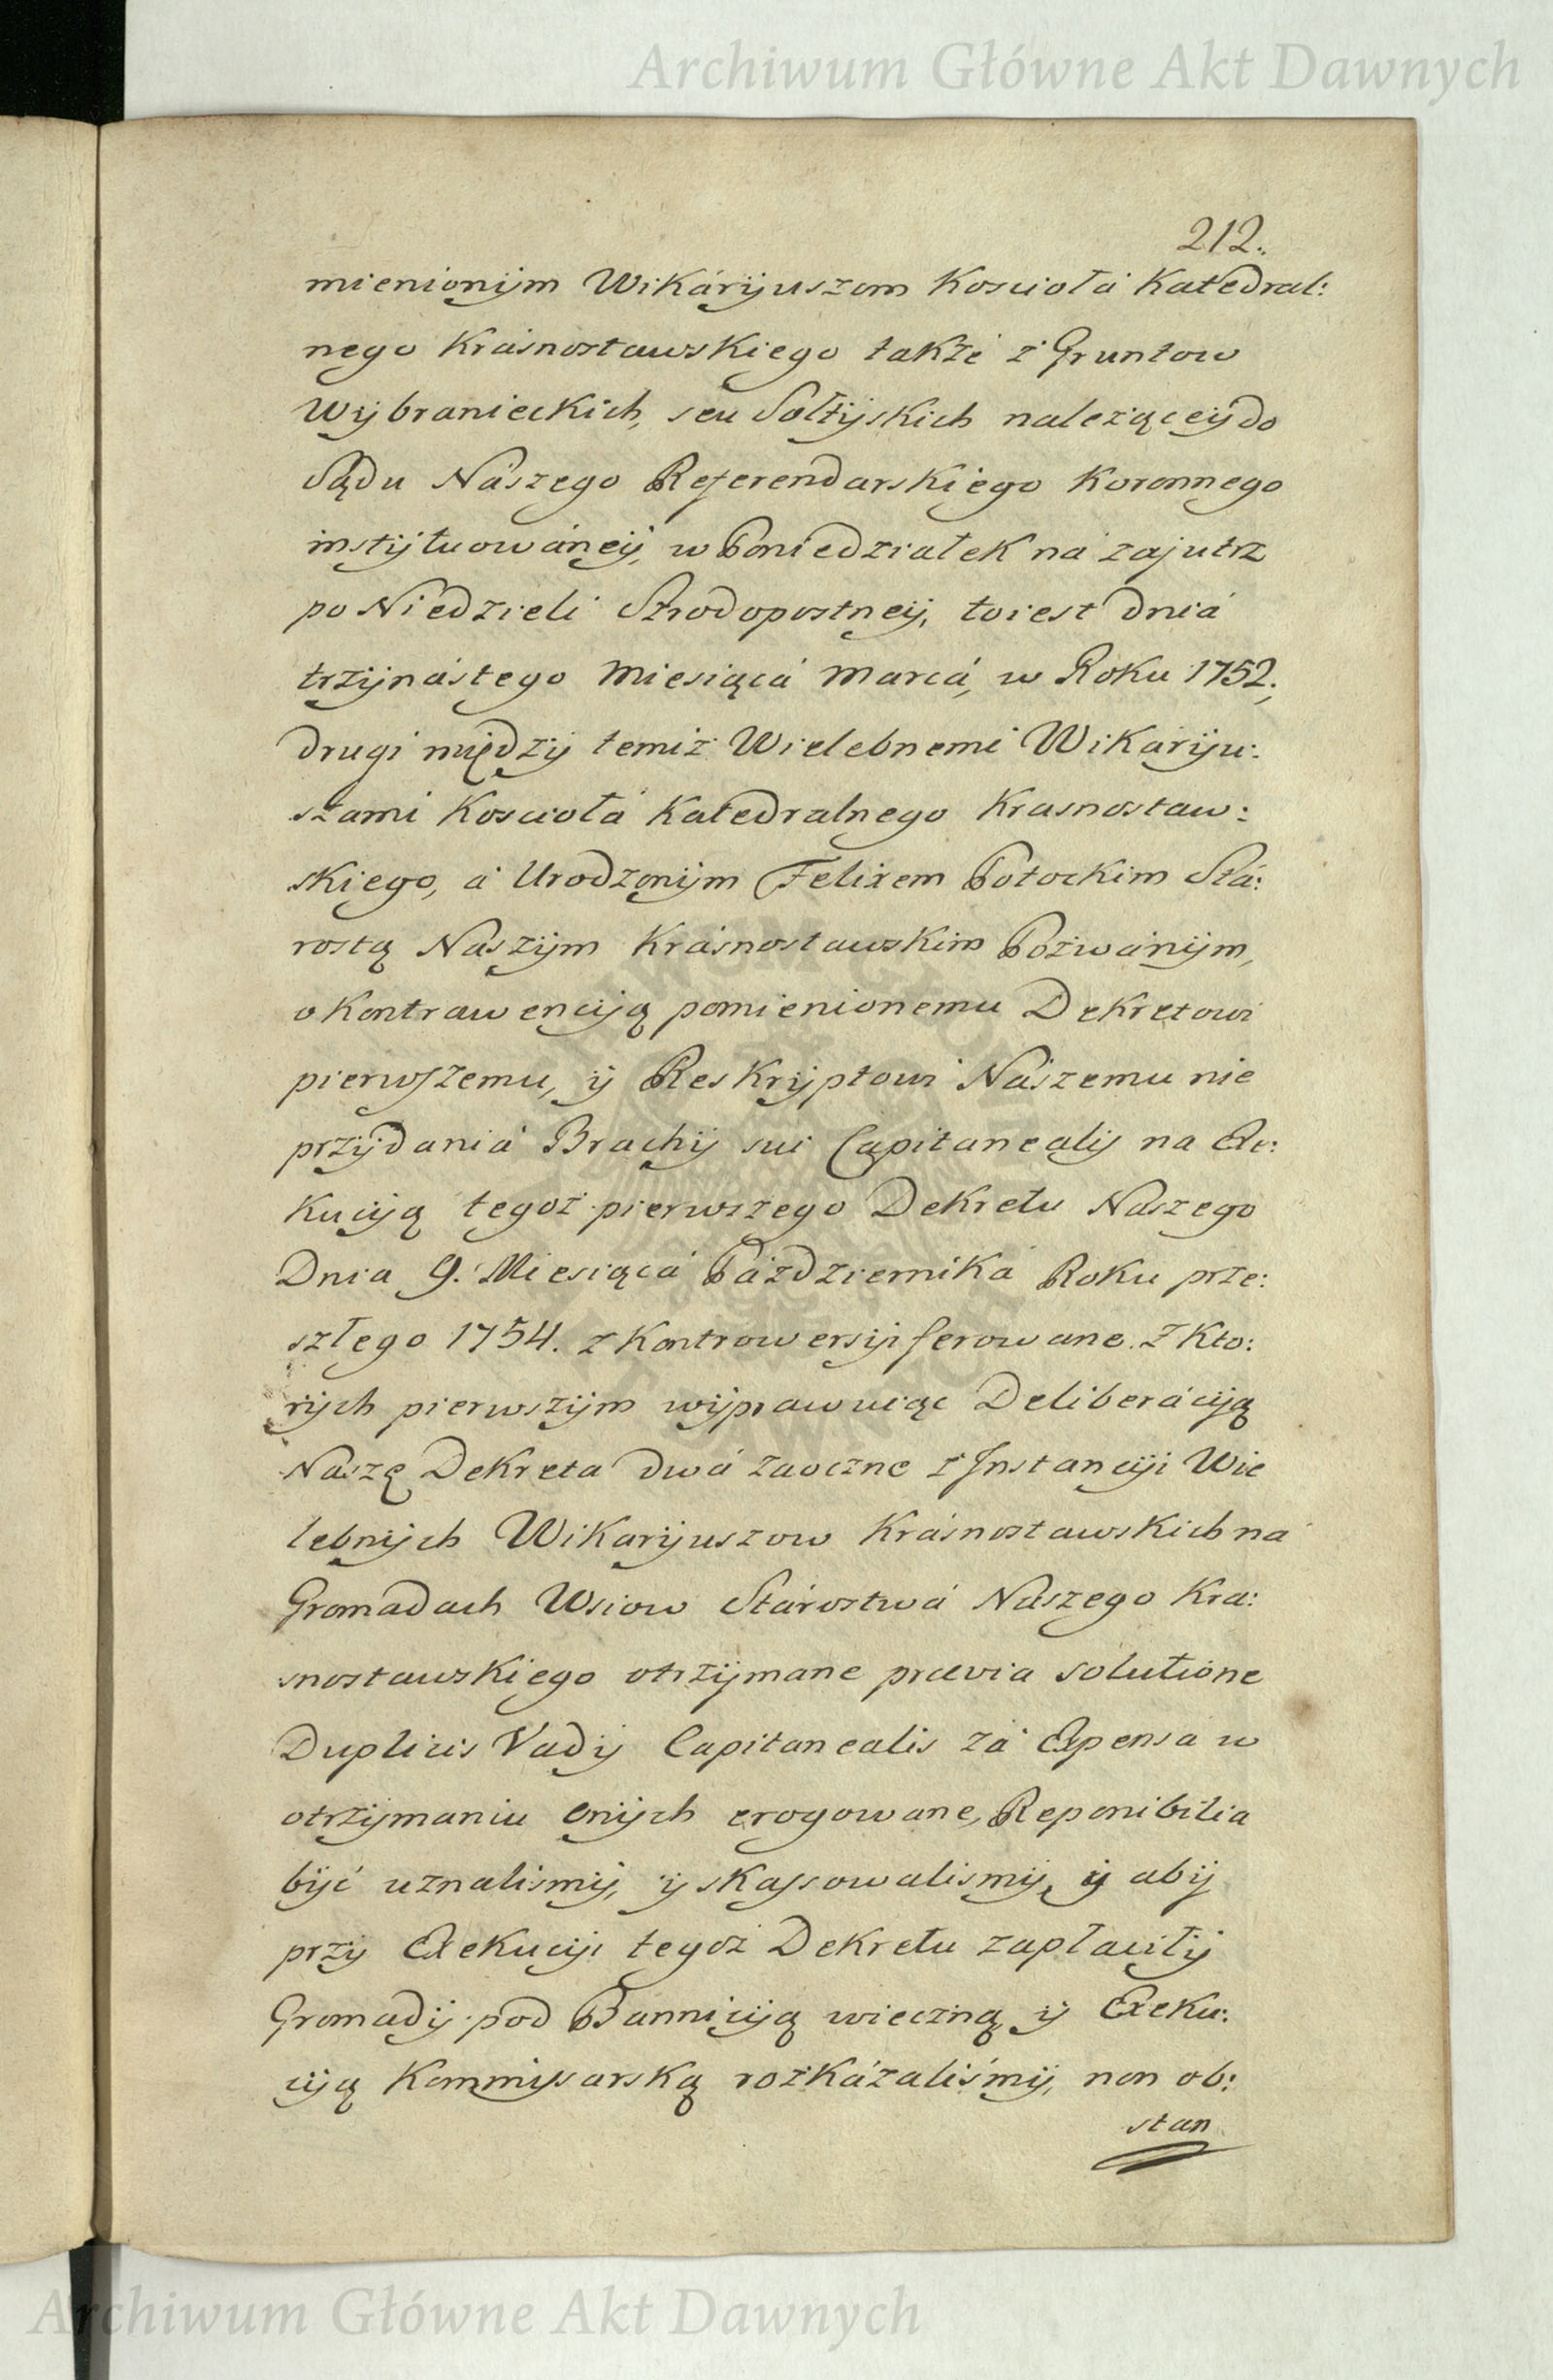 Archiwum Główne Akt Dawnych
212.
mienionym Wikáryuszom Koscioła Katedral:
nego Krásnostawskiego także z Gruntow
Wybranieckich, seu Sołtyskich nalezącey do
Sądu Nászego Referendarskiego Koronnego
instytuowáney, w Poniedziałek ná zajutrz
po Niedzieli Szrodopostney, toiest dniá
trzynástego Miesiącá Marcá, w Roku 1752,
drugi między temiż Wielebnemi Wikáryu:
szami Koscioła Katedralnego Krasnostaw:
skiego, á Urodzonym Felixem Potockim Stá:
rostą Naszym Krásnostawskim Pozwánym,
o Kontrawencyą pomienionemu Dekretowi
pierwszemu, y Reskryptowi Nászemu nie
przydaniá Brachy sui Capitanealy na Exe:
kucyą tegoż pierwszego Dekretu Naszego
Dnia 9. Miesiącá Pázdziernika Roku prze:
szłego 1754. z Kontrowersyi ferowane. Z Kto:
rych pierwszym wyprawuiąc Deliberácyą
Naszę Dekreta dwá zaoczne z Instancyi Wie
lebnych Wikaryuszow Krásnostawskich ná
Gromadach Wsiow Stárostwá Naszego Kra:
snostawskiego otrzymane prævia solutione
Duplicis Vady Capitanealis zá Expensa w
otrzymaniu onych erogowane, Reponibilia
być uznalismy, y skassowalismy, y aby
przy Exekucyi tegoż Dekretu zapłaciły
Gromady pod Bannicyą wieczną y Exeku:
cyą Kommissarską rozkázaliśmy, non ob:
stan
Archiwum Główne Akt Dawnych